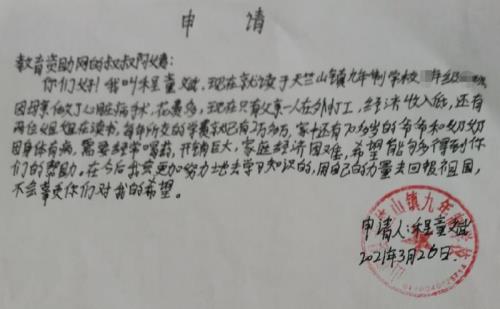 申请
教育资助网的叔叔阿姨:
你们好!我叫程童斌,现在就读于天竺山镇九年制学校 年级
因母亲做了心脏病手术,花费多,现在只有父亲一人在外打工,经济收入低,还有
两位姐姐在读书,每年所交的学费就已有2万多万,家中还有70多岁的爷爷和奶奶
因身体有病,需要经常喝药,开销巨大,家庭经济困难,希望有能够多得到你
们的帮助。在今后我会更加努力地去学习知识的,用自己的力量去回报祖国,
不会辜负你们对我的希望。
申请人:程童斌
2021年3月26日.
山镇九年